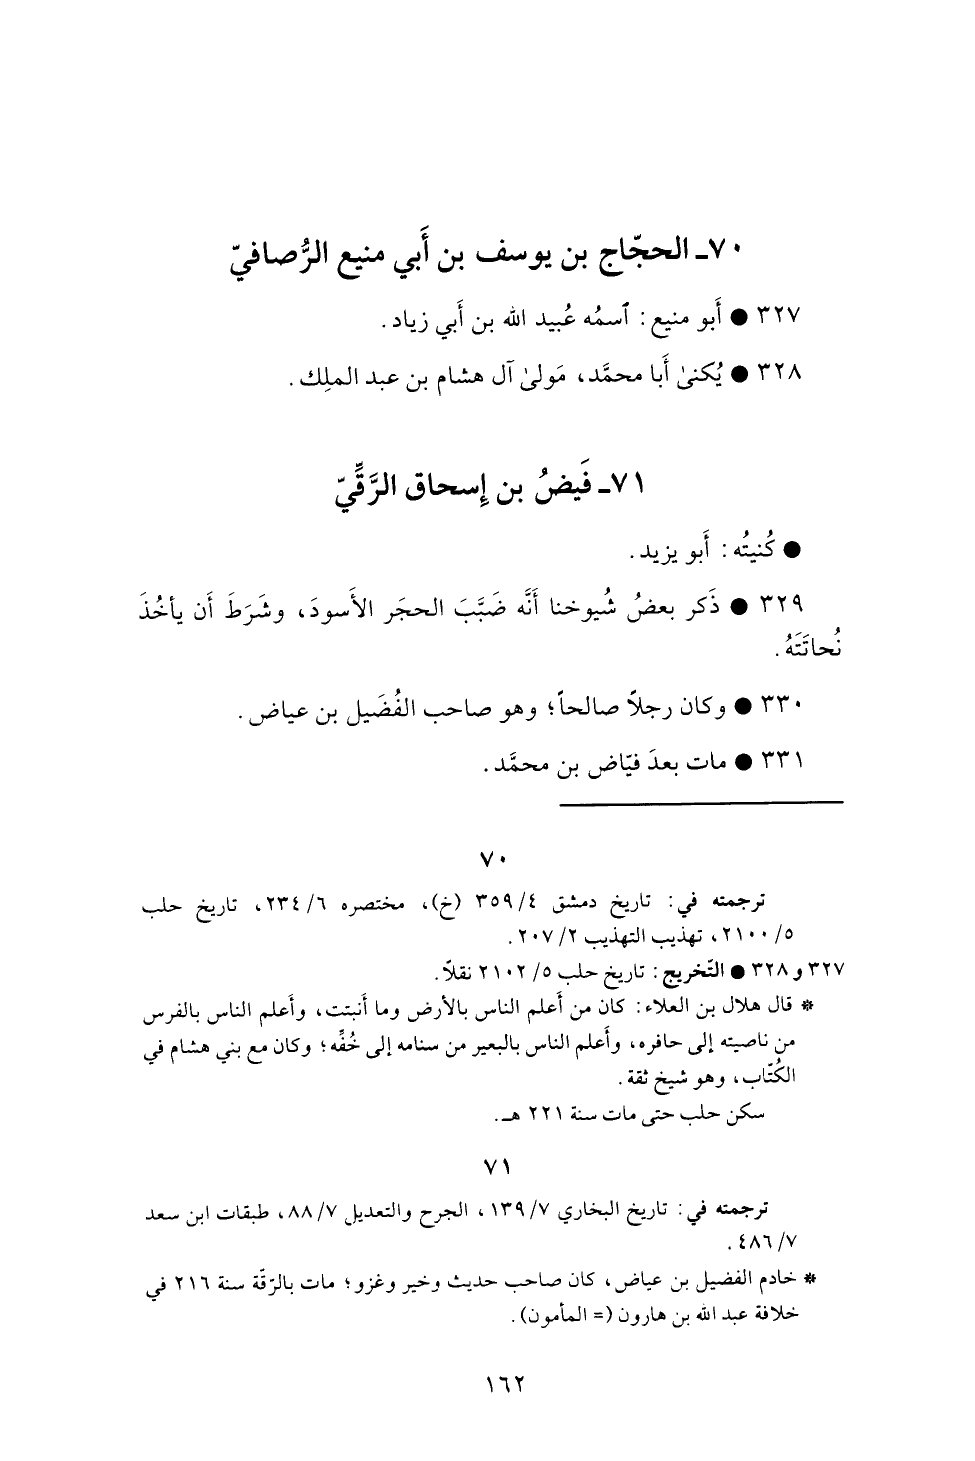 ٧٠ـ الحجّاج بن يوسف بن أَبي منيع الرُّصافيّ
٣٢٧ ● أَبو منيع: ٱسمُه عُبيد الله بن أَبي زياد.
٣٢٨ ● يُكنىٰ أَبا محمَّد، مَولىٰ آل هشام بن عبد الملِك.
٧١ـ فَيضُ بن إِسحاق الرَّقِّيّ
● كُنيتُه: أَبو يزيد.
٣٢٩ ● ذَكر بعضُ شُيوخنا أَنَّه ضَبَّبَ الحجَر الأَسودَ، وشَرَطَ أَن يأخُذَ
نُحاتَتَهُ.
٣٣٠ ● وكان رجلاً صالحاً؛ وهو صاحب الفُضَيل بن عياض.
٣٣١ ● مات بعدَ فيّاض بن محمَّد.
٧٠
ترجمته في: تاريخ دمشق ٤/ ٣٥٩ (خ)، مختصره ٦/ ٢٣٤، تاريخ حلب
٥/ ٢١٠٠، تهذيب التهذيب ٢/ ٢٠٧.
٣٢٧ و ٣٢٨ ● التّخريج: تاريخ حلب ٥/ ٢١٠٢ نقلاً.
* قال هلال بن العلاء: كان من أَعلم الناس بالأرض وما أَنبتت، وأَعلم الناس بالفرس
من ناصيته إلى حافره، وأَعلم الناس بالبعير من سنامه إلى خُفِّه؛ وكان مع بني هشام في
الكُتّاب، وهو شيخ ثقة.
سكن حلب حتى مات سنة ٢٢١ هـ.
٧١
ترجمته في: تاريخ البخاري ٧/ ١٣٩، الجرح والتعديل ٧/ ٨٨، طبقات ابن سعد
٧/ ٤٨٦.
* خادم الفضيل بن عياض، كان صاحب حديث وخير وغزو؛ مات بالرّقّة سنة ٢١٦ في
خلافة عبد الله بن هارون (= المأمون).
١٦٢